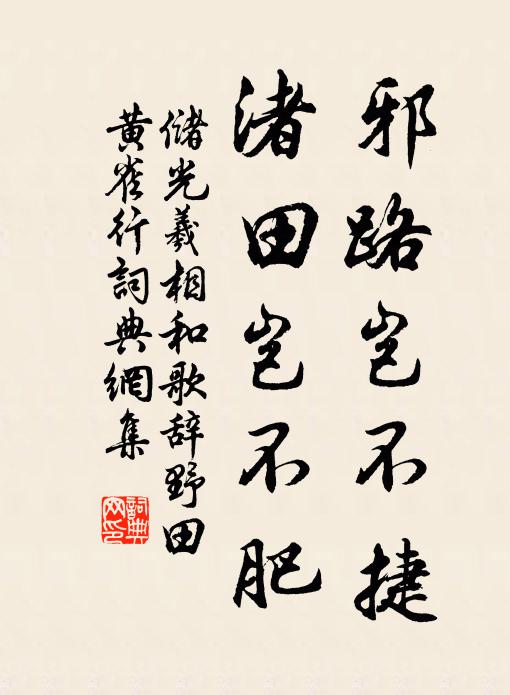 邪路岂不捷
渚田岂不肥
储光羲相和歌辞野田
黄雀行詞典網集
詞典
网印